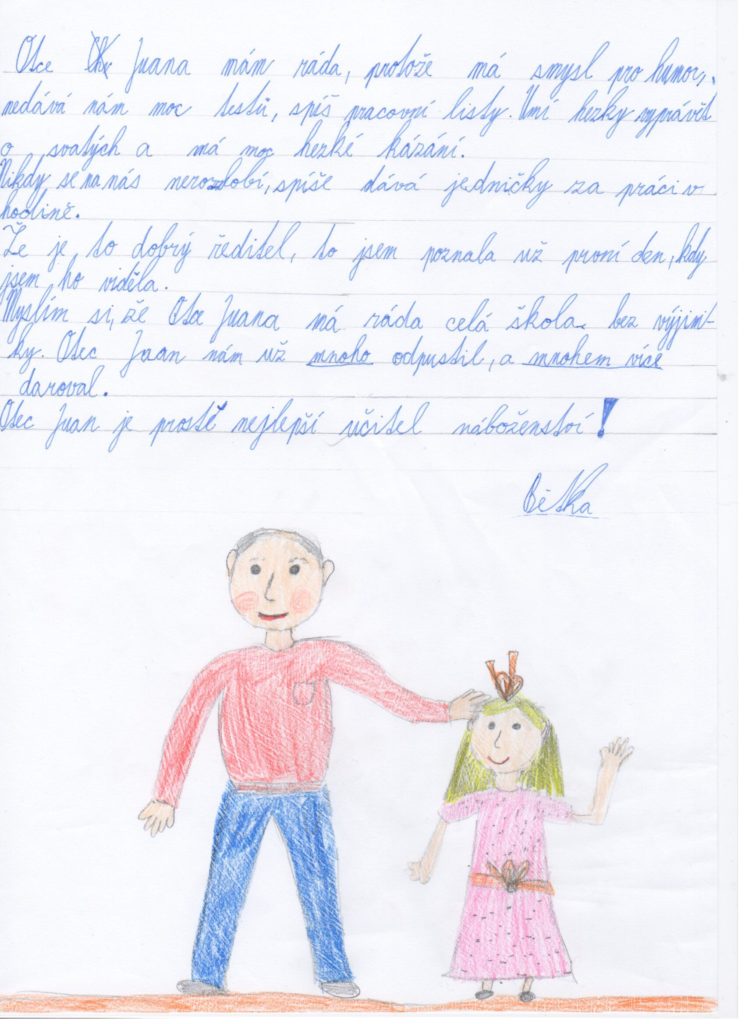 Otce Juana mám ráda, protože má smysl pro humor,
nedává nám moc testů, spíš pracovní listy. Umí hezky vyprávět
o svatých a má moc hezké kázání.
Nikdy se na nás nerozzlobí, spíše dává jedničky za práci v
hodině.
Že je to dobrý ředitel, to jsem poznala už první den, kdy
jsem ho viděla.
Myslím si, že Otce Juana má ráda celá škola bez vyjímt-
ky. Otec Juan nám už mnoho odpustil, a mnohem více
daroval.
Otec Juan je prostě nejlepší učitel náboženství!
Bětka